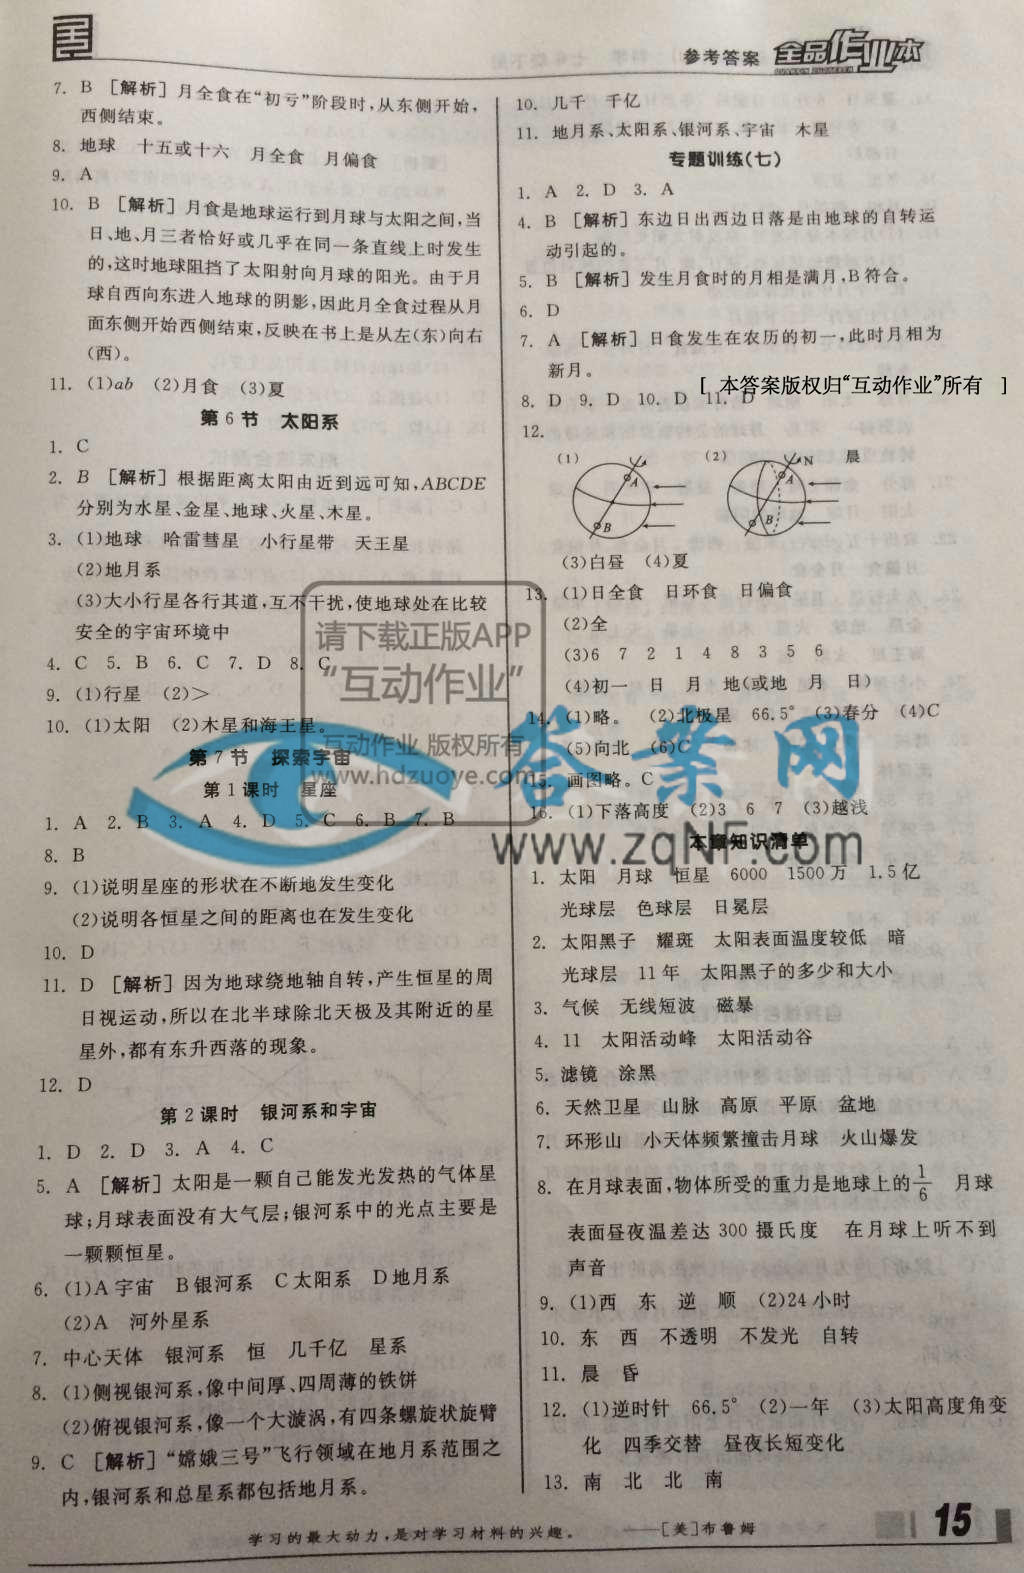 参考答案 全品作业本
7. B [解析] 月全食在“初亏”阶段时,从东侧开始,
西侧结束。
8. 地球 十五或十六 月全食 月偏食
9. A
10. B [解析] 月食是地球运行到月球与太阳之间,当
日、地、月三者恰好或几乎在同一条直线上时发生
的,这时地球阻挡了太阳射向月球的阳光。由于月
球自西向东进入地球的阴影,因此月全食过程从月
面东侧开始西侧结束,反映在书上是从左(东)向右
(西)。
11. (1)ab (2)月食 (3)夏
第 6 节 太阳系
1. C
2. B [解析] 根据距离太阳由近到远可知,ABCDE
分别为水星、金星、地球、火星、木星。
3. (1)地球 哈雷彗星 小行星带 天王星
(2)地月系
(3)大小行星各行其道,互不干扰,使地球处在比较
安全的宇宙环境中
4. C 5. B 6. C 7. D 8. C
9. (1)行星 (2)>
10. (1)太阳 (2)木星和海王星。
第 7 节 探索宇宙
第 1 课时 星座
1. A 2. B 3. A 4. D 5. C 6. B 7. B
8. B
9. (1)说明星座的形状在不断地发生变化
(2)说明各恒星之间的距离也在发生变化
10. D
11. D [解析] 因为地球绕地轴自转,产生恒星的周
日视运动,所以在北半球除北天极及其附近的星
星外,都有东升西落的现象。
12. D
第 2 课时 银河系和宇宙
1. D 2. D 3. A 4. C
5. A [解析] 太阳是一颗自己能发光发热的气体星
球;月球表面没有大气层;银河系中的光点主要是
一颗颗恒星。
6. (1)A 宇宙 B 银河系 C 太阳系 D 地月系
(2)A 河外星系
7. 中心天体 银河系 恒 几千亿 星系
8. (1)侧视银河系,像中间厚、四周薄的铁饼
(2)俯视银河系,像一个大漩涡,有四条螺旋状旋臂
9. C [解析] “嫦娥三号”飞行领域在地月系范围之
内,银河系和总星系都包括地月系。
10. 几千 千亿
11. 地月系、太阳系、银河系、宇宙 木星
专题训练(七)
1. A 2. D 3. A
4. B [解析] 东边日出西边日落是由地球的自转运
动引起的。
5. B [解析] 发生月食时的月相是满月,B 符合。
6. D
7. A [解析] 日食发生在农历的初一,此时月相为
新月。
[ 本答案版权归“互动作业”所有 ]
8. D 9. D 10. D 11. D
12.
(1) (2) N 晨
A A
B B
(3)白昼 (4)夏
13. (1)日全食 日环食 日偏食
(2)全
(3)6 7 2 1 4 8 3 5 6
(4)初一 日 月 地(或地 月 日)
14. (1)略。 (2)北极星 66.5° (3)春分 (4)C
(5)向北 (6)C
15. 画图略。C
16. (1)下落高度 (2)3 6 7 (3)越浅
本章知识清单
1. 太阳 月球 恒星 6000 1500 万 1.5 亿
光球层 色球层 日冕层
2. 太阳黑子 耀斑 太阳表面温度较低 暗
光球层 11 年 太阳黑子的多少和大小
3. 气候 无线短波 磁暴
4. 11 太阳活动峰 太阳活动谷
5. 滤镜 涂黑
6. 天然卫星 山脉 高原 平原 盆地
7. 环形山 小天体频繁撞击月球 火山爆发
8. 在月球表面,物体所受的重力是地球上的1/6 月球
表面昼夜温差达 300 摄氏度 在月球上听不到
声音
9. (1)西 东 逆 顺 (2)24 小时
10. 东 西 不透明 不发光 自转
11. 晨 昏
12. (1)逆时针 66.5° (2)一年 (3)太阳高度角变
化 四季交替 昼夜长短变化
13. 南 北 北 南
请下载正版APP
“互动作业”
互动作业 版权所有
www.hdzuoye.com
答案网
www.zqNF.com
学习的最大动力,是对学习材料的兴趣。 ——[美]布鲁姆
15